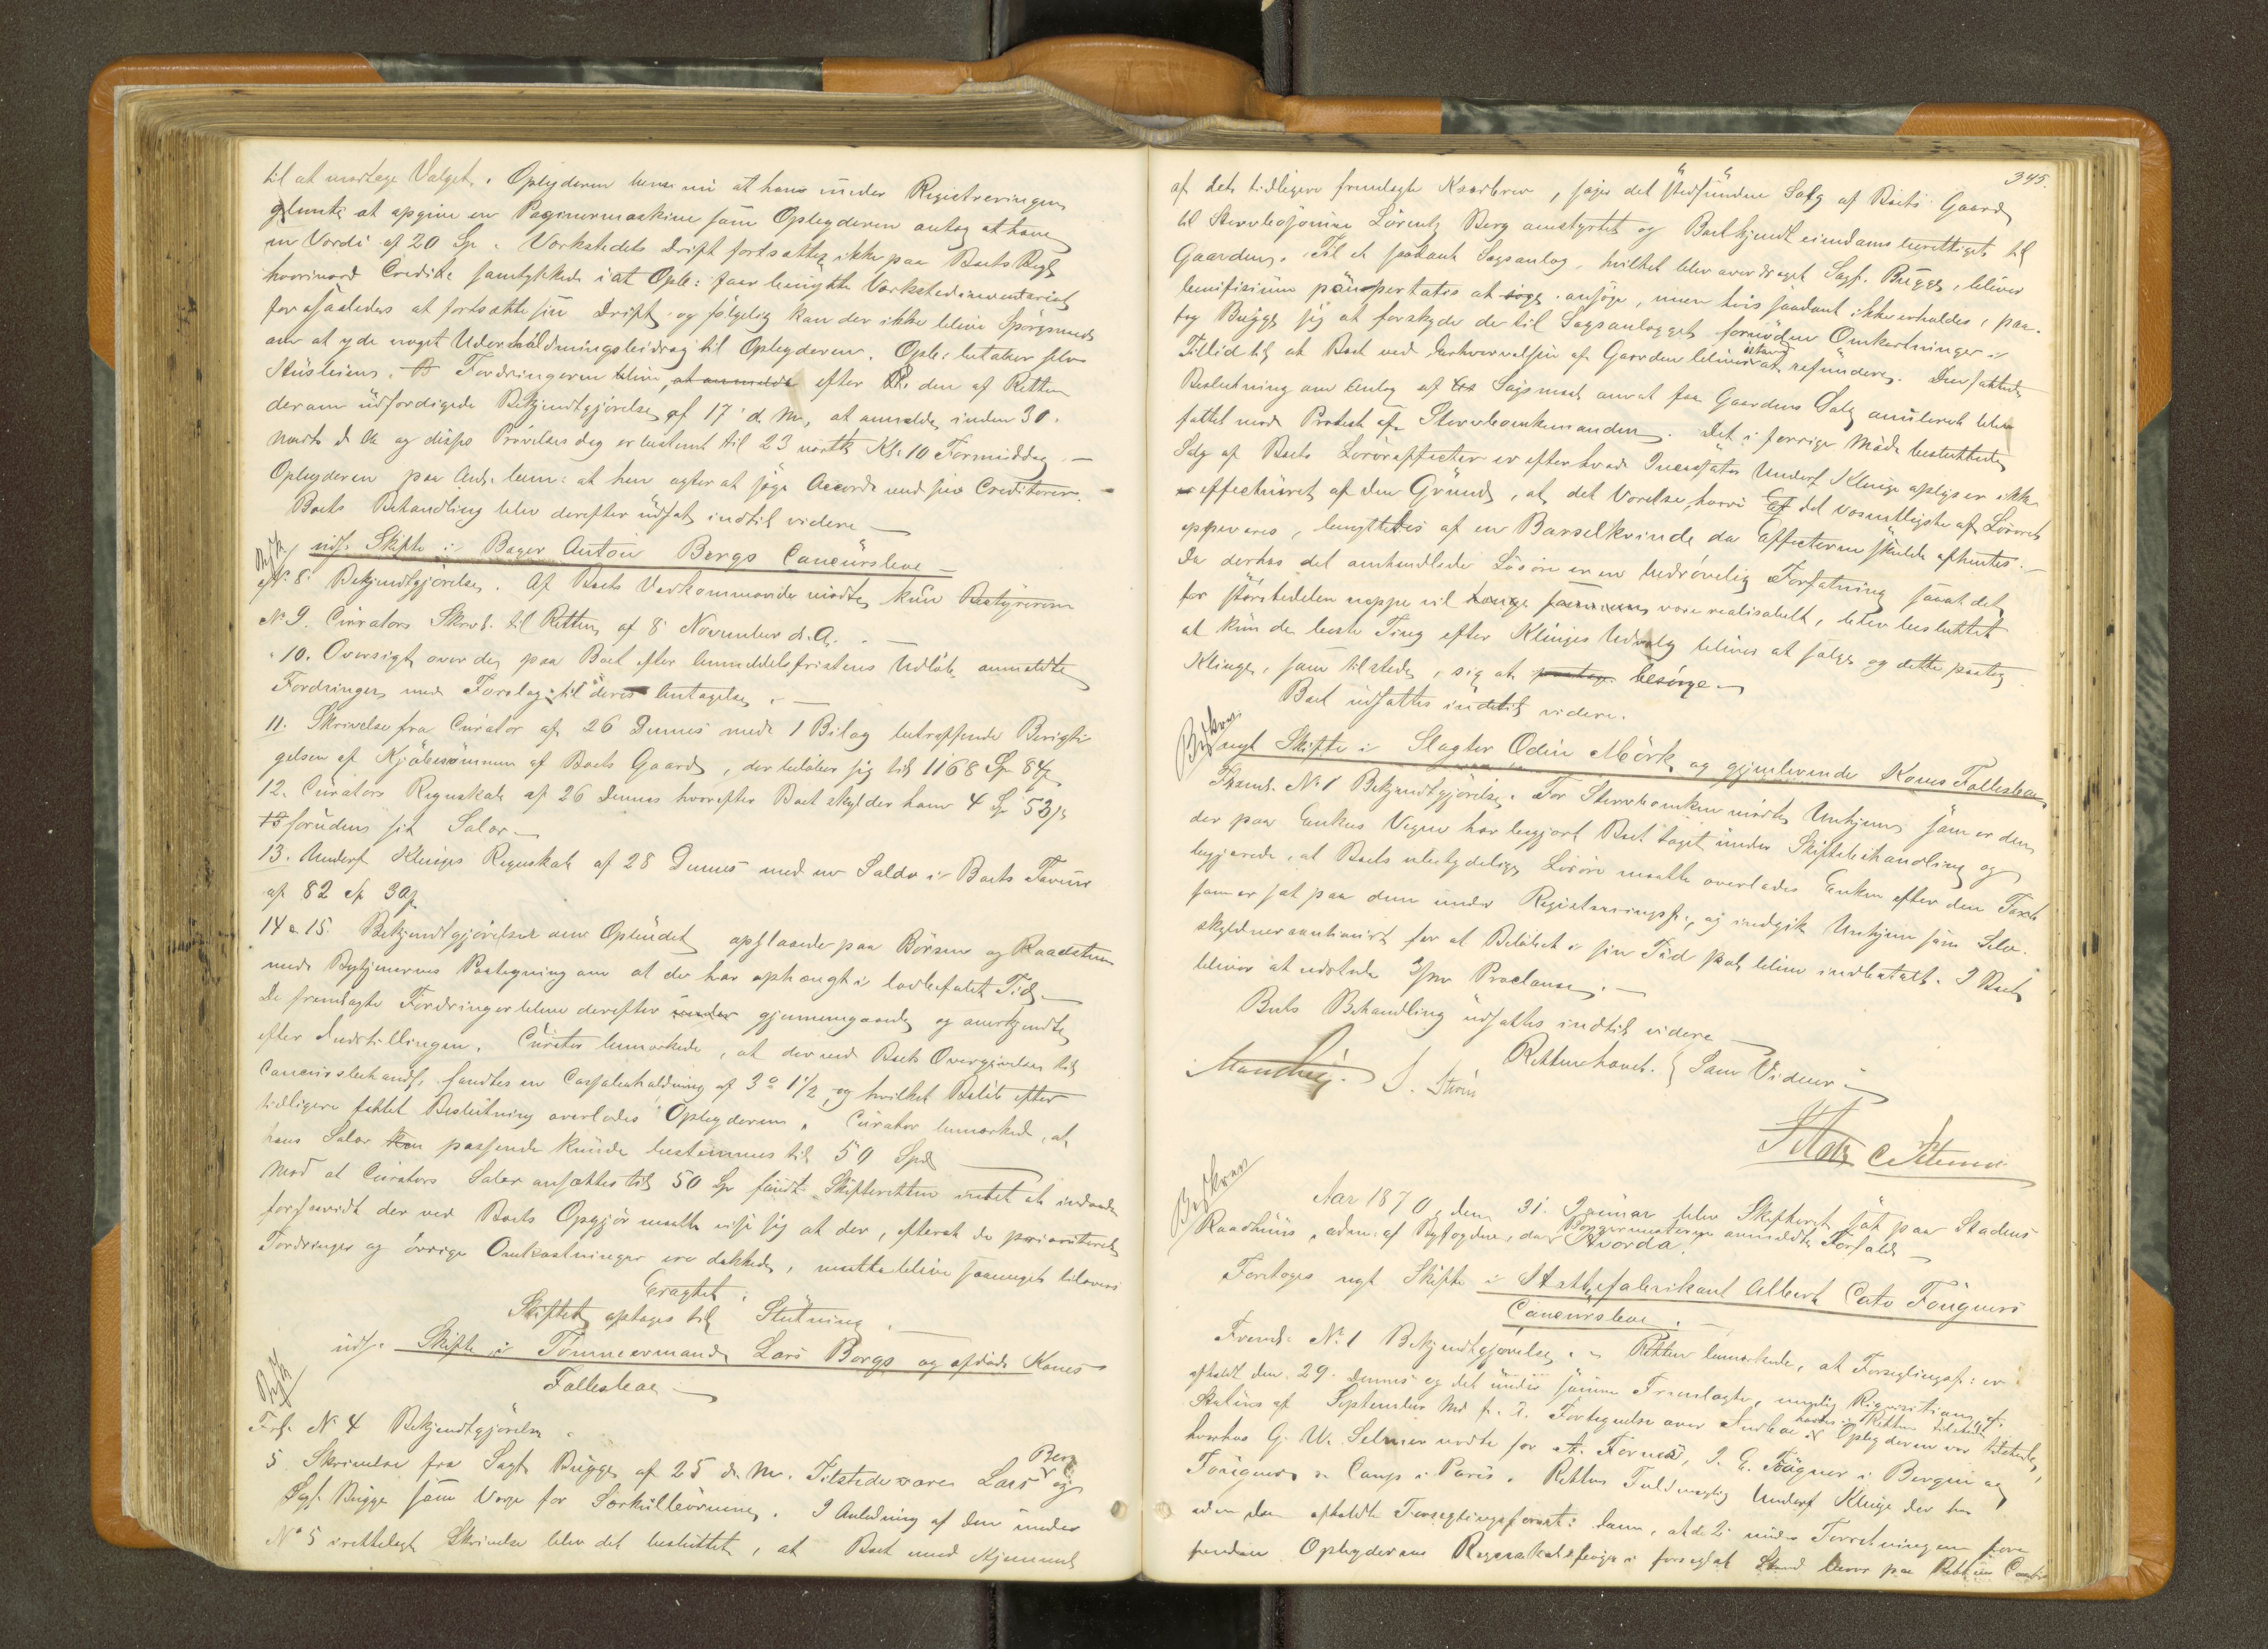 til at modtage Valget. Oplyderen bem. nu at hans under Registreringen
glemte at opgive en Paginermaskine som Oplyderen antog at have
en Værdi af 20 Sp. Værkstedets Drift fortsættes ikke paa Boets Regl
hvorimod Credit. samtykkede i at Opb: faar benytte Værkstedsinventariet
for saaledes at fortsætte sin Drift og følgelig kan der ikke blive Spørgsmaal
om at yde noget Underholdningsbidrag til Oplyderen. Opb: betaler selv
Husleien. Fordringerne blive, at anmelde efter den af Retten
derom udfærdigede Bekjendtgjørelse af 17' d. M., at anmelde inden 30.
næste d. A. og Prøvelsesdag er bestemt til 23 næstk Kl. 10 Formiddag. —
Oplyderen paa Anl. bem: at han agter at søge Accord med sine Creditorer. —
Boets Behandling blev derefter udsat indtil videre —
Besk. uds. Skifte i Bager Anton Bergs Concursboe —
No 8. Bekjendtgjørelse. Af Boets Vedkommende mødte kun Bestyreren
No 9. Curators Skriv. til Retten af 8 November d. A. —
" 10. Oversigt over de paa Boet efter Anmeldelsfristens Udløb anmeldte
Fordringer med Forslag til deres Antagelse. —
11. Skrivelse fra Curator af 26 Dennes med 1 Bilag betræffende Berigti-
gelsen af Kjøbesummen af Boets Gaard, der beløber sig til 1168 Sp 84 s
12. Curators Regnskab af 26 Dennes hvorefter Boet skylder ham 4 Sp 53 s
foruden sit Salær —
13. Underf Klinges Regnskab af 28 Dennes med en Saldo i Boets Faveur
af 82 Sp 30 s.
14 & 15. Bekjendtgjørelser om Opbudet opslaaede paa Børsen og Raadstuen
med Bytjenernes Paategning om at de har ophængt i lovbefalet Tid. —
De fremlagte Fordringer bleve derefter under gjennemgaaede og anerkjendte
efter Indstillingen. Curator bemærkede, at der ved Boets Overgivelse til
Concursbehandl. fandtes en Cassabeholdning af 3 1 1/2, og hvilket Beløb efter
tidligere fattet Beslutning overlodes Oplyderen. Curator bemærkede, at
hans Salær kan passende kunde bestemmes til 50 Spd
Mod at Curators Salær ansættes til 50 Sp fandt Skifteretten intet at indvende
forsaavidt der ved Boets Opgjør maatte vise sig at der, efterat de prioriterede
Fordringer og øvrige Omkostninger ere dækkede, maatte blive saameget tilovers
Eragtet:
Skiftet optages til Slutning. —
Besk uds. Skifte i Tømmermand Lars Bergs og afdøde Kones
Fællesboe —
Frl. No 4 Bekjendtgjørelse.
5 Skrivelse fra Sagf. Bugge af 25 d. M. Tilstede vare Lars Berg og
Sagf. Bugge som Verge for Særkuldbørnene. I Anledning af den under
No 5 irettelagte Skrivelse blev det besluttet, at Boet med Hjemmel
345.
af det tidligere fremlagte Kaarbrev, søger det stedfundne Salg af Boets Gaard
til Stervbosønnen Lorentz Berg omstyrtet og Boet kjendt eiendomsberettiget til
Gaarden. Til et saadant Sagsanlæg, hvilket blev overdraget Sagf. Bugge, bliver
benifisium paupertatis at søge ansøge, men hvis saadant ikke erholdes, paa-
tog Bugge sig at forskyde de til Sagsanlægget fornødne Omkostninger i
Tillid til at Boet ved Erhvervelsen af Gaarden bliver istand at refundere. Den fattede
Beslutning om Anlæg af Sagsmaal om at faa Gaardens Salg annuleret blev
fattet mod Protest af Stervboenkemanden. Det i forrige Møde besluttede
Salg af Boets Løsøreffecter er efter hvad Incassator Underf Klinge oplyser ikke
effectueret af den Grund, at det Værelse, hvori det væsentligste af Løsøret
opbevares, benyttedes af en Barselkvinde da Effecterne skulde afhentes. —
Da derhos det omhandlede Løsøre er en bedrøvelig Forfatning saaat det
for størstedelen neppe vil være realisabelt, blev besluttet
at kun de beste Ting efter Klinges Udvalg bliver at sælge og dette paatog
Klinge, som tilstede, sig at besørge —
Boet udsattes indtil videre.
Beskrev. nyt Skifte i Slagter Odin Mørk og gjenlevende Kones Fællesboe.
Freml. No 1 Bekjendtgjørelse. For Stervboenken mødte Unhjem som er den,
der paa Enkens Vegne har begjært Boet taget under Skiftebehandling og
begjærede, at Boets ubetydelige Løsøre maatte overlades Enken efter den Taxt
som er sat paa dem under Registreringsf., og indgik Unhjem som Selv-
skyldnercautionist for at Beløbet i sin Tid skal blive indbetalt. I Boet
bliver at udstede 3/m Proclama. —
Boets Behandling udsattes indtil videre —
Retten hævet. Som Vidner —
Beskrev
Aar 1870, den 31. Januar blev Skifteret sat paa Stadens
Raadhuus, adm. af Byfogden, da Borgermesteren anmeldte Forfald —
Hvorda:
Foretoges nyt Skifte i Støbefabrikant Albert Cato Fougners
Concursboe. —
Freml. No 1 Bekjendtgjørelse. — Retten bemærkede, at Forseglingsf: er
afholdt den 29. Dennes og det under samme Fremlagte, nemlig Requisitionen af,
Status af September Md f. A. Fortegnelse over Andboe havdes i Retten tilstede. Oplyderen var tilstede,
hvorhos G. W. Selmer mødte for A. Fornæs, J. E. Fougner i Bergen og
Fougner & Comp i Paris. Rettens Fuldmægtig Underf Klinge der har
adm. den afholdte Forseglingsforret: bem, at de 2 under Forretningen fore-
fundne Oplyderens Regnskabsbøger i forseglet Stand beror paa Rettens Contor